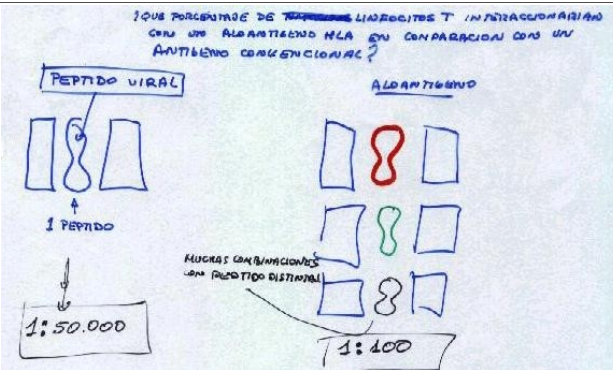 ¿QUE PORCENTAJE DE LINFOCITOS T INTERACCIONARIAN
CON UN ALOANTIGENO HLA EN COMPARACION CON UN
ANTIGENO CONVENCIONAL?
PEPTIDO VIRAL
ALOANTIGENO
1 PEPTIDO
MUCHAS COMBINACIONES
CON PEPTIDO DISTINTAS
1:50.000
1:100